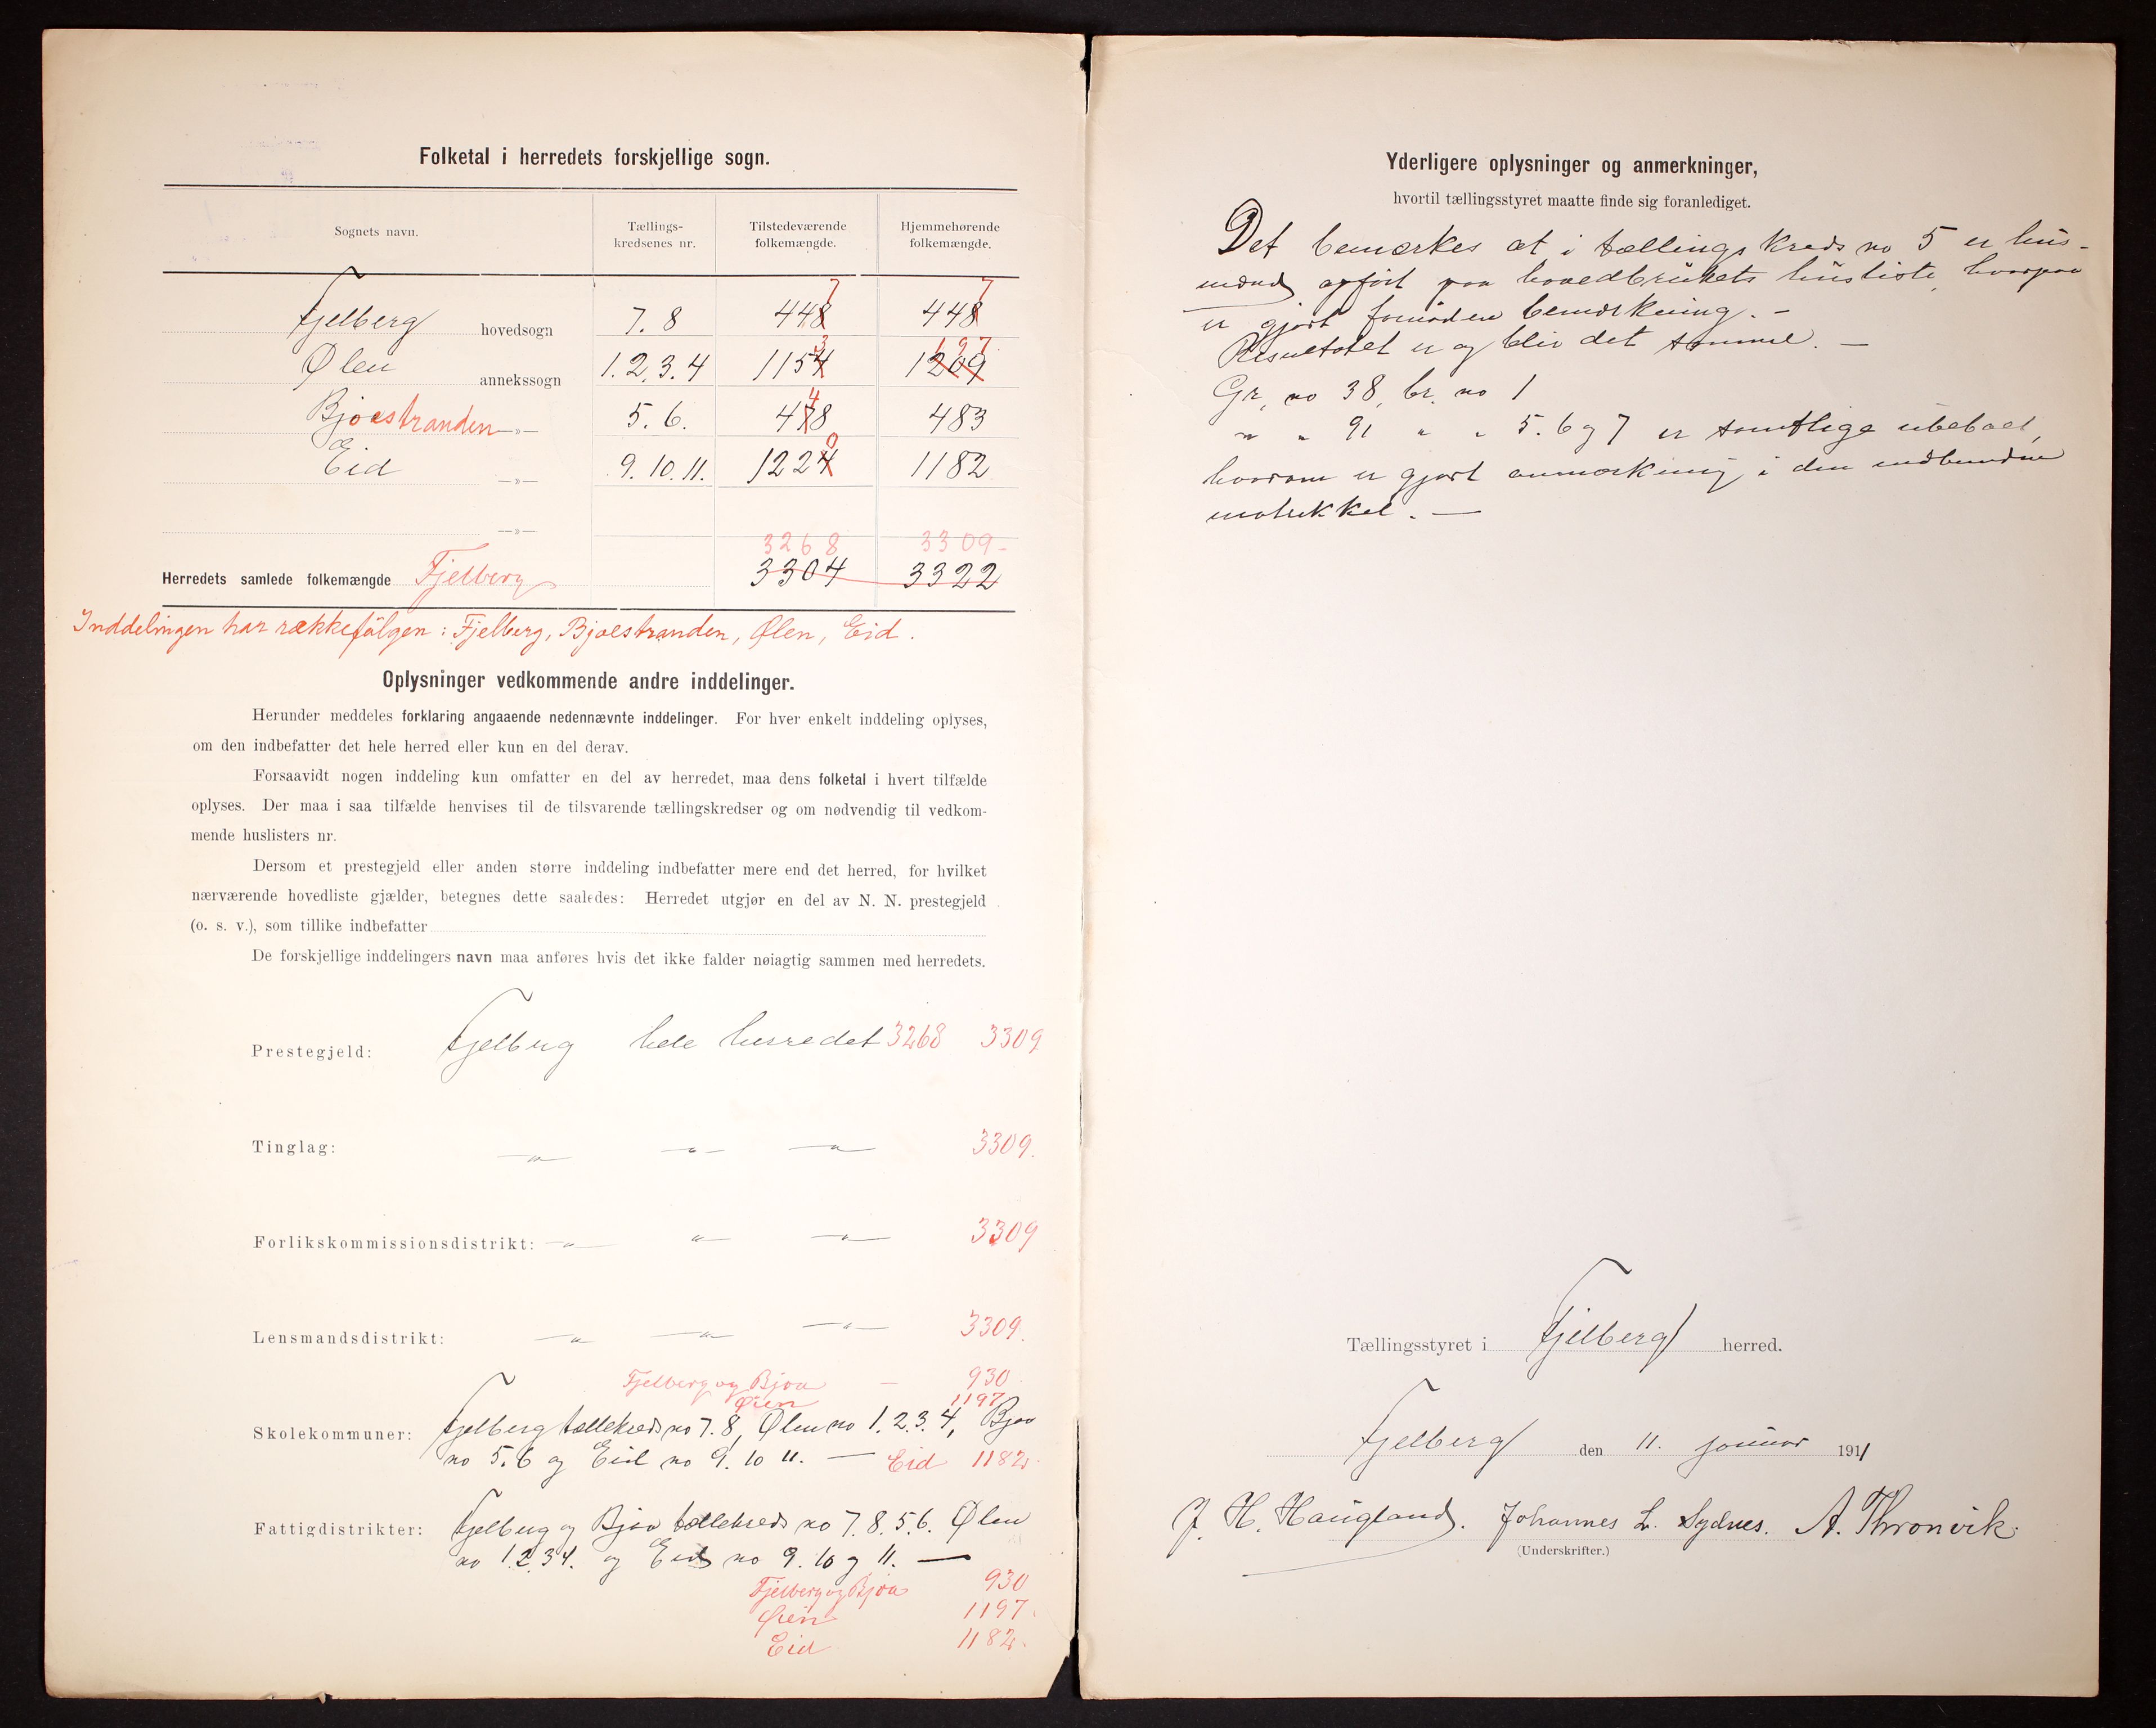 Folketal i herredets forskjellige sogn.
Sognets navn. Tællings-kredsenes nr. Tilstedeværende folkemængde. Hjemmehørende folkemængde.
7 7
Fjelberg hovedsogn 7. 8 448 448
3 197
Ølen annekssogn 1. 2. 3. 4 1154 1209
4
Bjoestranden —»— 5. 6. 478 483
0
Eid —»— 9. 10. 11. 1224 1182
—»—
3268 3309-
Herredets samlede folkemængde Fjelberg 3304 3322
Inddelingen har rækkefølgen: Fjelberg, Bjoestranden, Ølen, Eid.
Oplysninger vedkommende andre inddelinger.
Herunder meddeles forklaring angaaende nedennævnte inddelinger. For hver enkelt inddeling oplyses,
om den indbefatter det hele herred eller kun en del derav.
Forsaavidt nogen inddeling kun omfatter en del av herredet, maa dens folketal i hvert tilfælde
oplyses. Der maa i saa tilfælde henvises til de tilsvarende tællingskredser og om nødvendig til vedkom-
mende huslisters nr.
Dersom et prestegjeld eller anden større inddeling indbefatter mere end det herred, for hvilket
nærværende hovedliste gjælder, betegnes dette saaledes: Herredet utgjør en del av N. N. prestegjeld
(o. s. v.), som tillike indbefatter
De forskjellige inddelingers navn maa anføres hvis det ikke falder nøiagtig sammen med herredets.
Prestegjeld: Fjelberg hele herredet 3268 3309
Tinglag: —"— —"— —"— 3309.
Forlikskommissionsdistrikt: —"— " —"— 3309
Lensmandsdistrikt: —"— —"— —"— 3309.
Fjelberg og Bjoa — 930
Ølen 1197
Skolekommuner: Fjelberg tællekreds no 7. 8, Ølen no 1. 2. 3. 4, Bjoa
no 5. 6 og Eid no 9. 10 11. — Eid 1182.
Fattigdistrikter: Fjelberg og Bjoa tællekreds no 7. 8. 5. 6. Ølen
no 1. 2. 3 4. og Eid no 9. 10 og 11. —
Fjelberg og Bjoa 930
Ølen 1197.
Eid 1182.
Yderligere oplysninger og anmerkninger,
hvortil tællingsstyret maatte finde sig foranlediget.
Det bemærkes at i tællingskreds no 5 er hus-
mænd opført paa hovedbrukets husliste, hvorpaa
er gjort fornøden bemærkning. —
Resultatet er og blir det samme. —
Gr. no 38, br. no 1
" " 91 " " 5. 6 og 7 er samtlige ubeboet,
hvorom er gjort anmærkning i den indbundne
matrikkel. —
Tællingsstyret i Fjelberg herred.
Fjelberg den 11. januar 1911
J. H. Haugland. Johannes L. Sydnes. A. Thronvik.
(Underskrifter.)